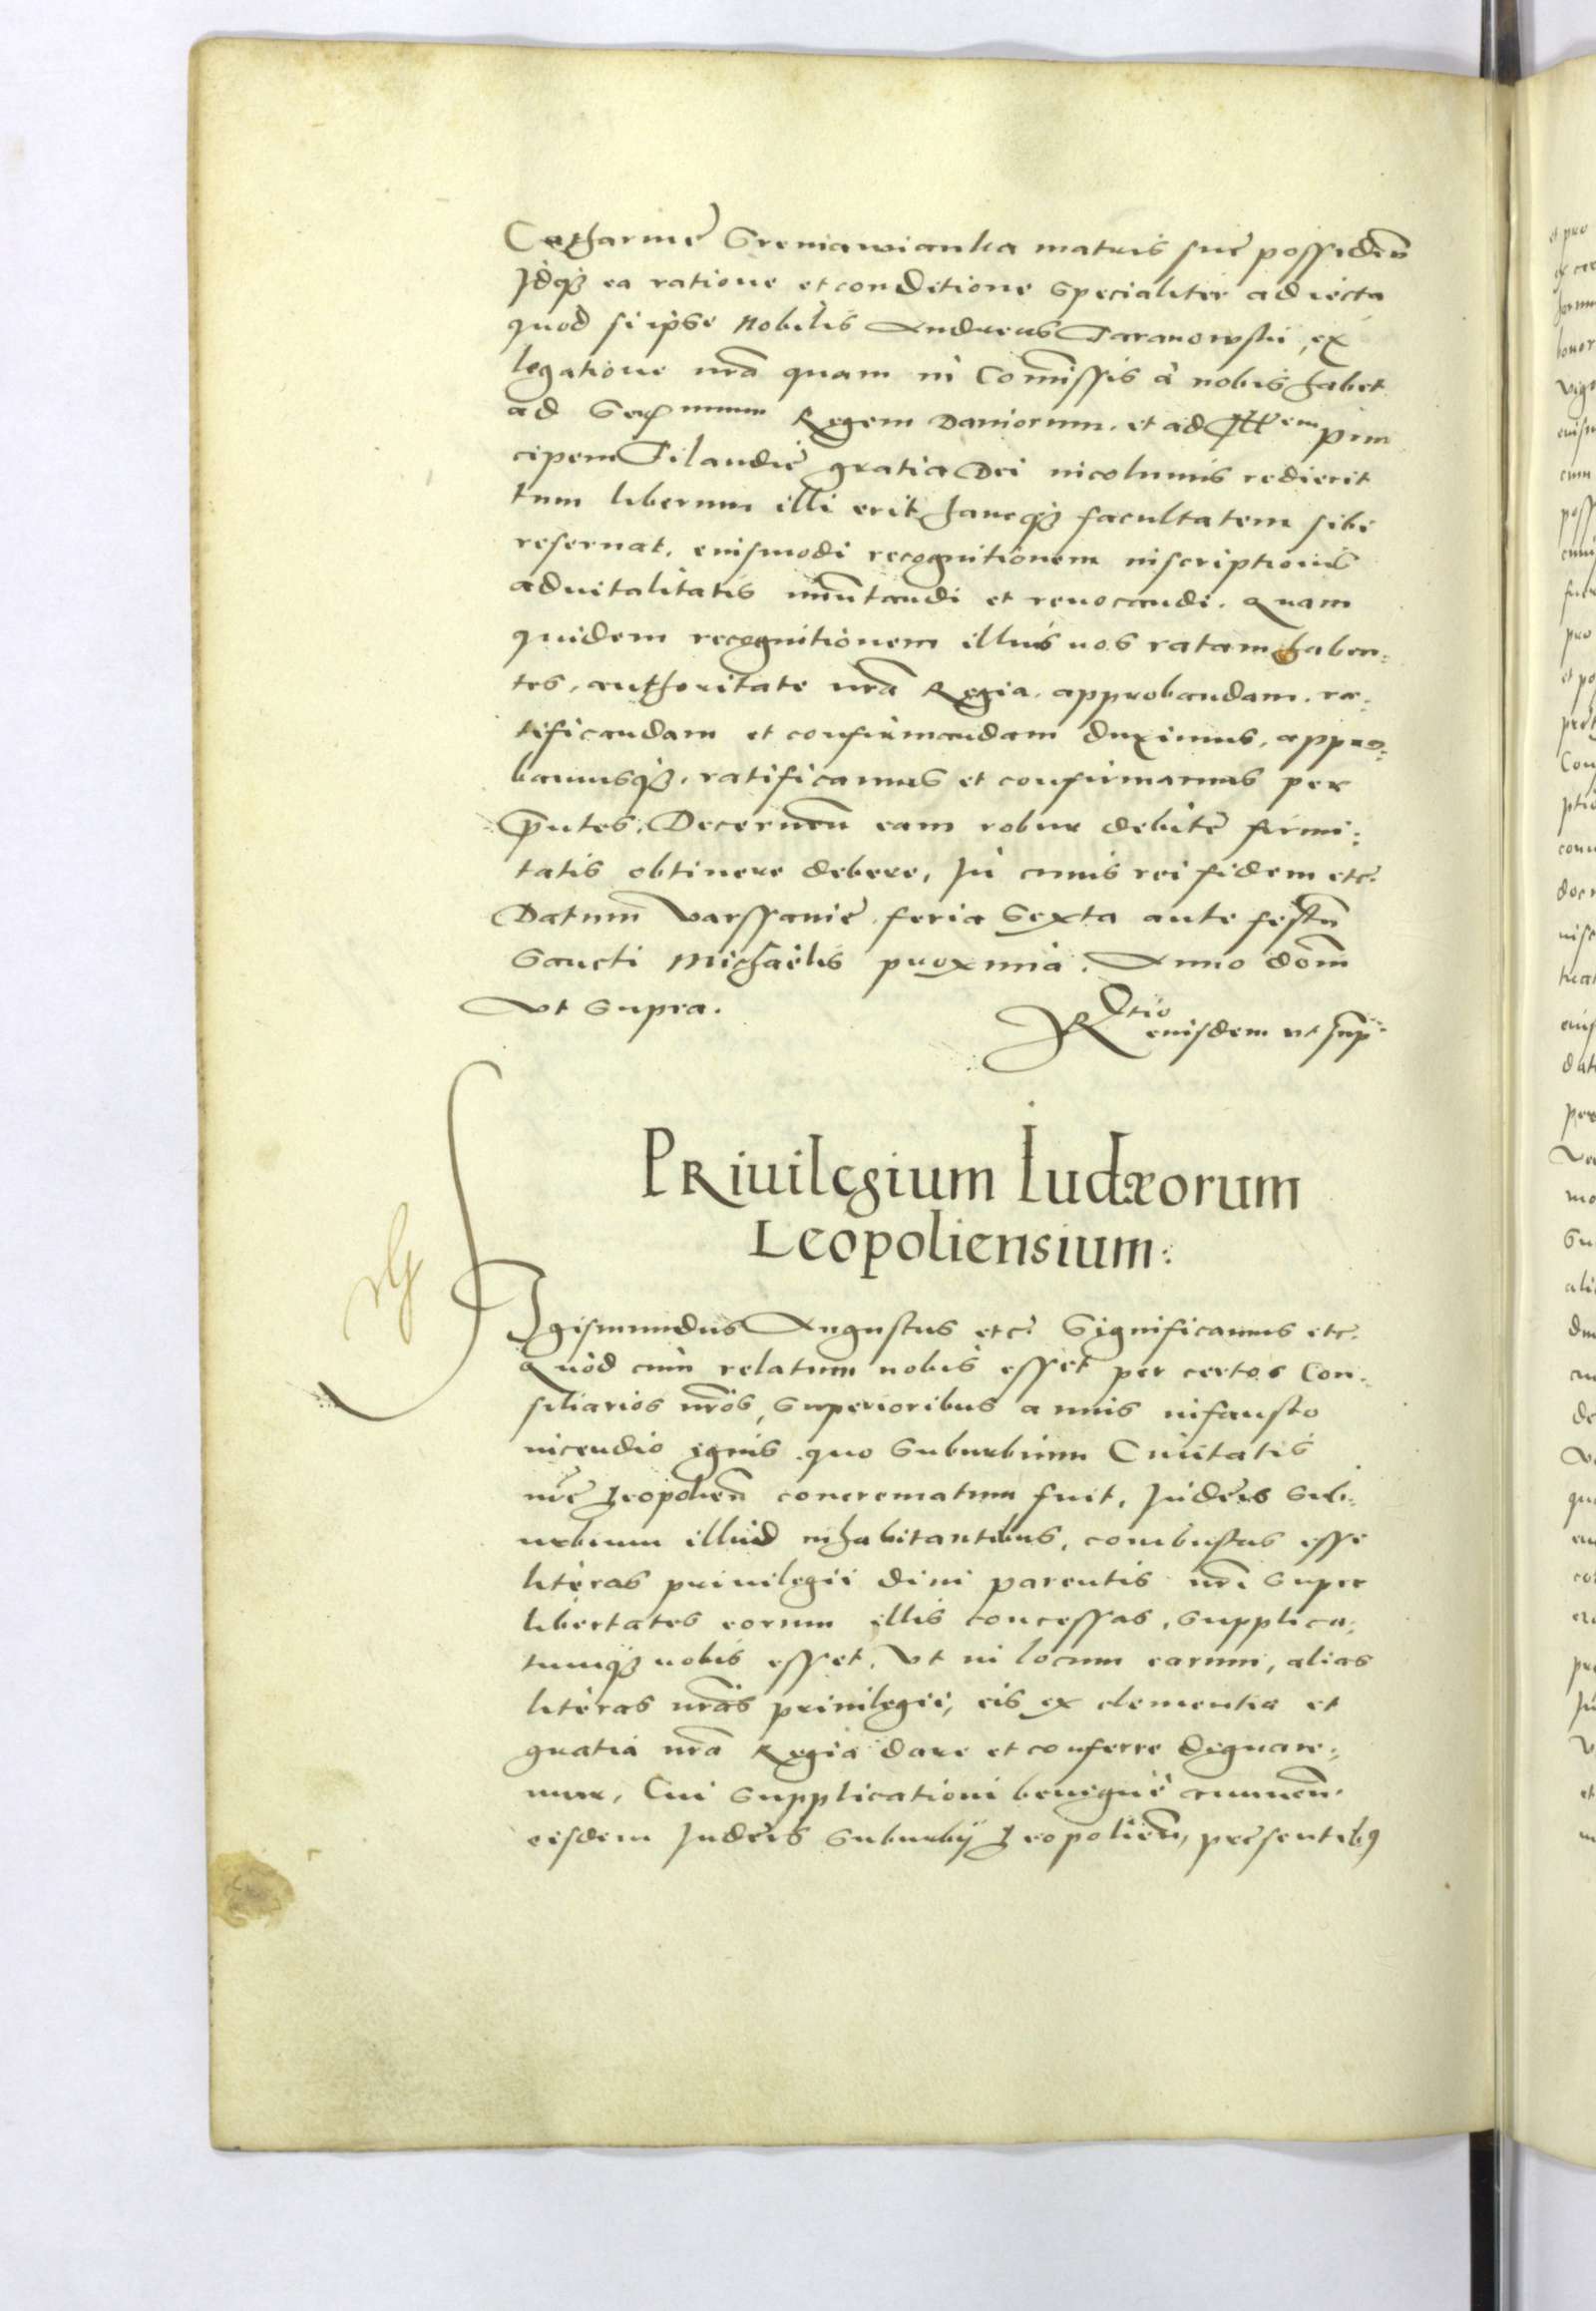 Catharinę Greniawianka matris suę possiden̄
Idq₃ ea ratione et conditione specialiter adiecta
quod si ipse Nobilis Andreas Taranowski, ex
legatione nr̄a quam in Com̄issis à nobis habet
ad Ser^mum Regem Daniorum. et ad Ill^em prin
cipem Filandię gratia Dei incolumis redierit
tum liberum illi erit hancq₃ facultatem sibi
reseruat, eiusmodi recognitionem inscriptionis
aduitalitatis immutandi et reuocandi. Quam
quidem recognitionem illius nos ratam haben:
tes, authoritate nr̄a Regia. approbandam. ra:
tificandam et confirmandam duximus, appro:
bamusq₃, ratificamus et confirmamus per
p̄ntes, Decernen̄ eam robur debitę firmi:
tatis obtinere debere, In cuius rei fidem etc.
Datum Varssauię feria Sexta ante festū
Sancti Michaëlis proxima. Anno dom̄
Vt supra.
R^tio eiusdem ut sup:
PRiuilegium Iudæorum
Leopoliensium:
SIgismundus Augustus etc. Significamus etc.
Quod cum relatum nobis esset per certos Con:
siliarios nr̄os, superioribus annis infausto
incendio ignis quo Suburbium Ciuitatis
nr̄ę Leopolien̄ concrematum fuit, Iudęis Sub:
urbium illud inhabitantibus, combustas esse
literas priuilegii diui parentis nr̄i super
libertates eorum illis concessas, supplica:
tumq₃ nobis esset, Vt in locum earum, alias
literas nr̄as priuilegii, eis ex clementia et
gratia nr̄a Regia dare et conferre dignare:
mur, Cui supplicationi benignè annuen̄
eisdem Iudęis Suburbÿ Leopolien̄, pręsentib₉